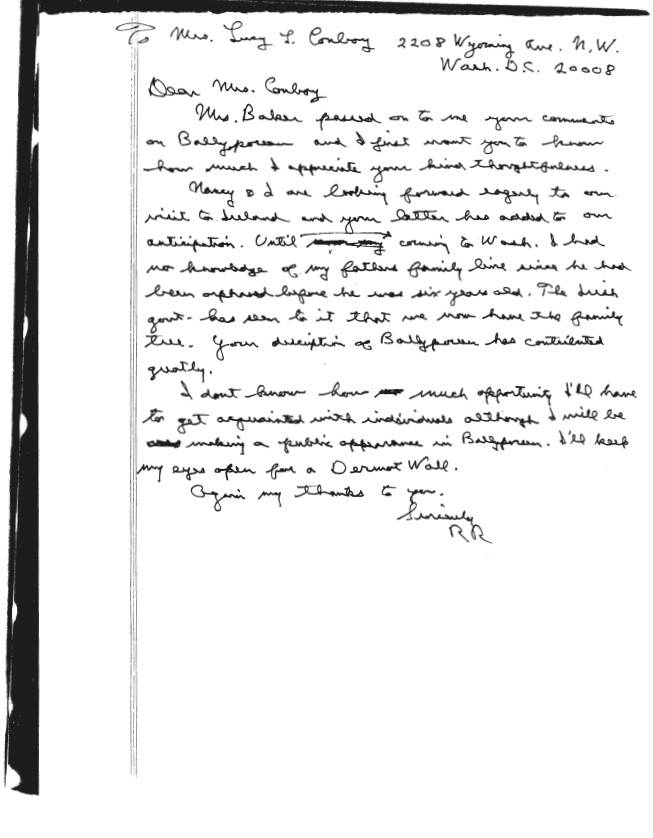 To Mrs. Lucy L. Conboy 2208 Wyoming Ave. N.W.
Wash. D.C. 20008
Dear Mrs. Conboy
Mrs. Baker passed on to me your comments
on Ballyporeen and I first want you to know
how much I appreciate your kind thoughtfulness.
Nancy & I are looking forward eagerly to our
visit to Ireland and your letter has added to our
anticipation. Until coming to Wash. I had
no knowledge of my fathers family line since he had
been orphaned before he was six years old. The Irish
govt. has seen to it that we now have the family
tree. Your description of Ballyporeen has contributed
greatly.
I dont know how much opportunity I'll have
to get acquainted with individuals although I will be
making a public appearance in Ballyporeen. I'll keep
my eyes open for a Dermot Wall.
Again my thanks to you.
Sincerely
RR